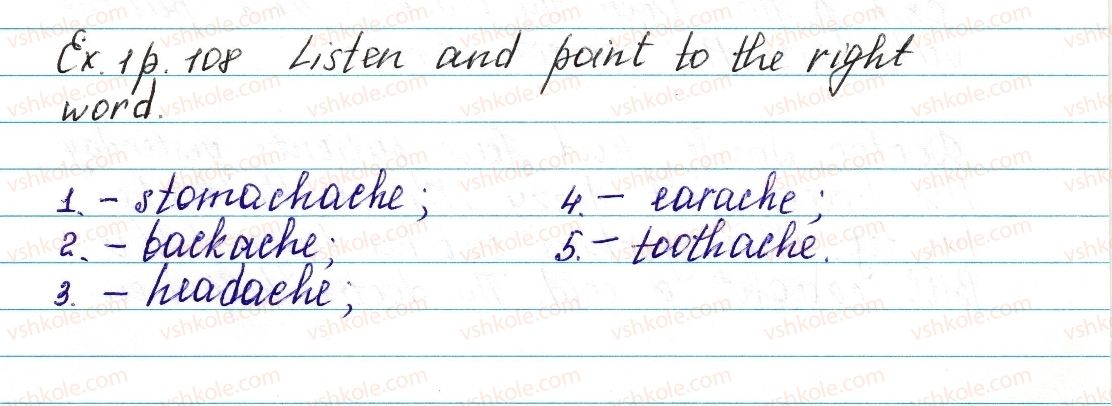 Ex. 1 p. 108 Listen and point to the right
word.
1. – stomachache;
2. – backache;
3. – headache;
4. – earache;
5. – toothache.
vshkole.com